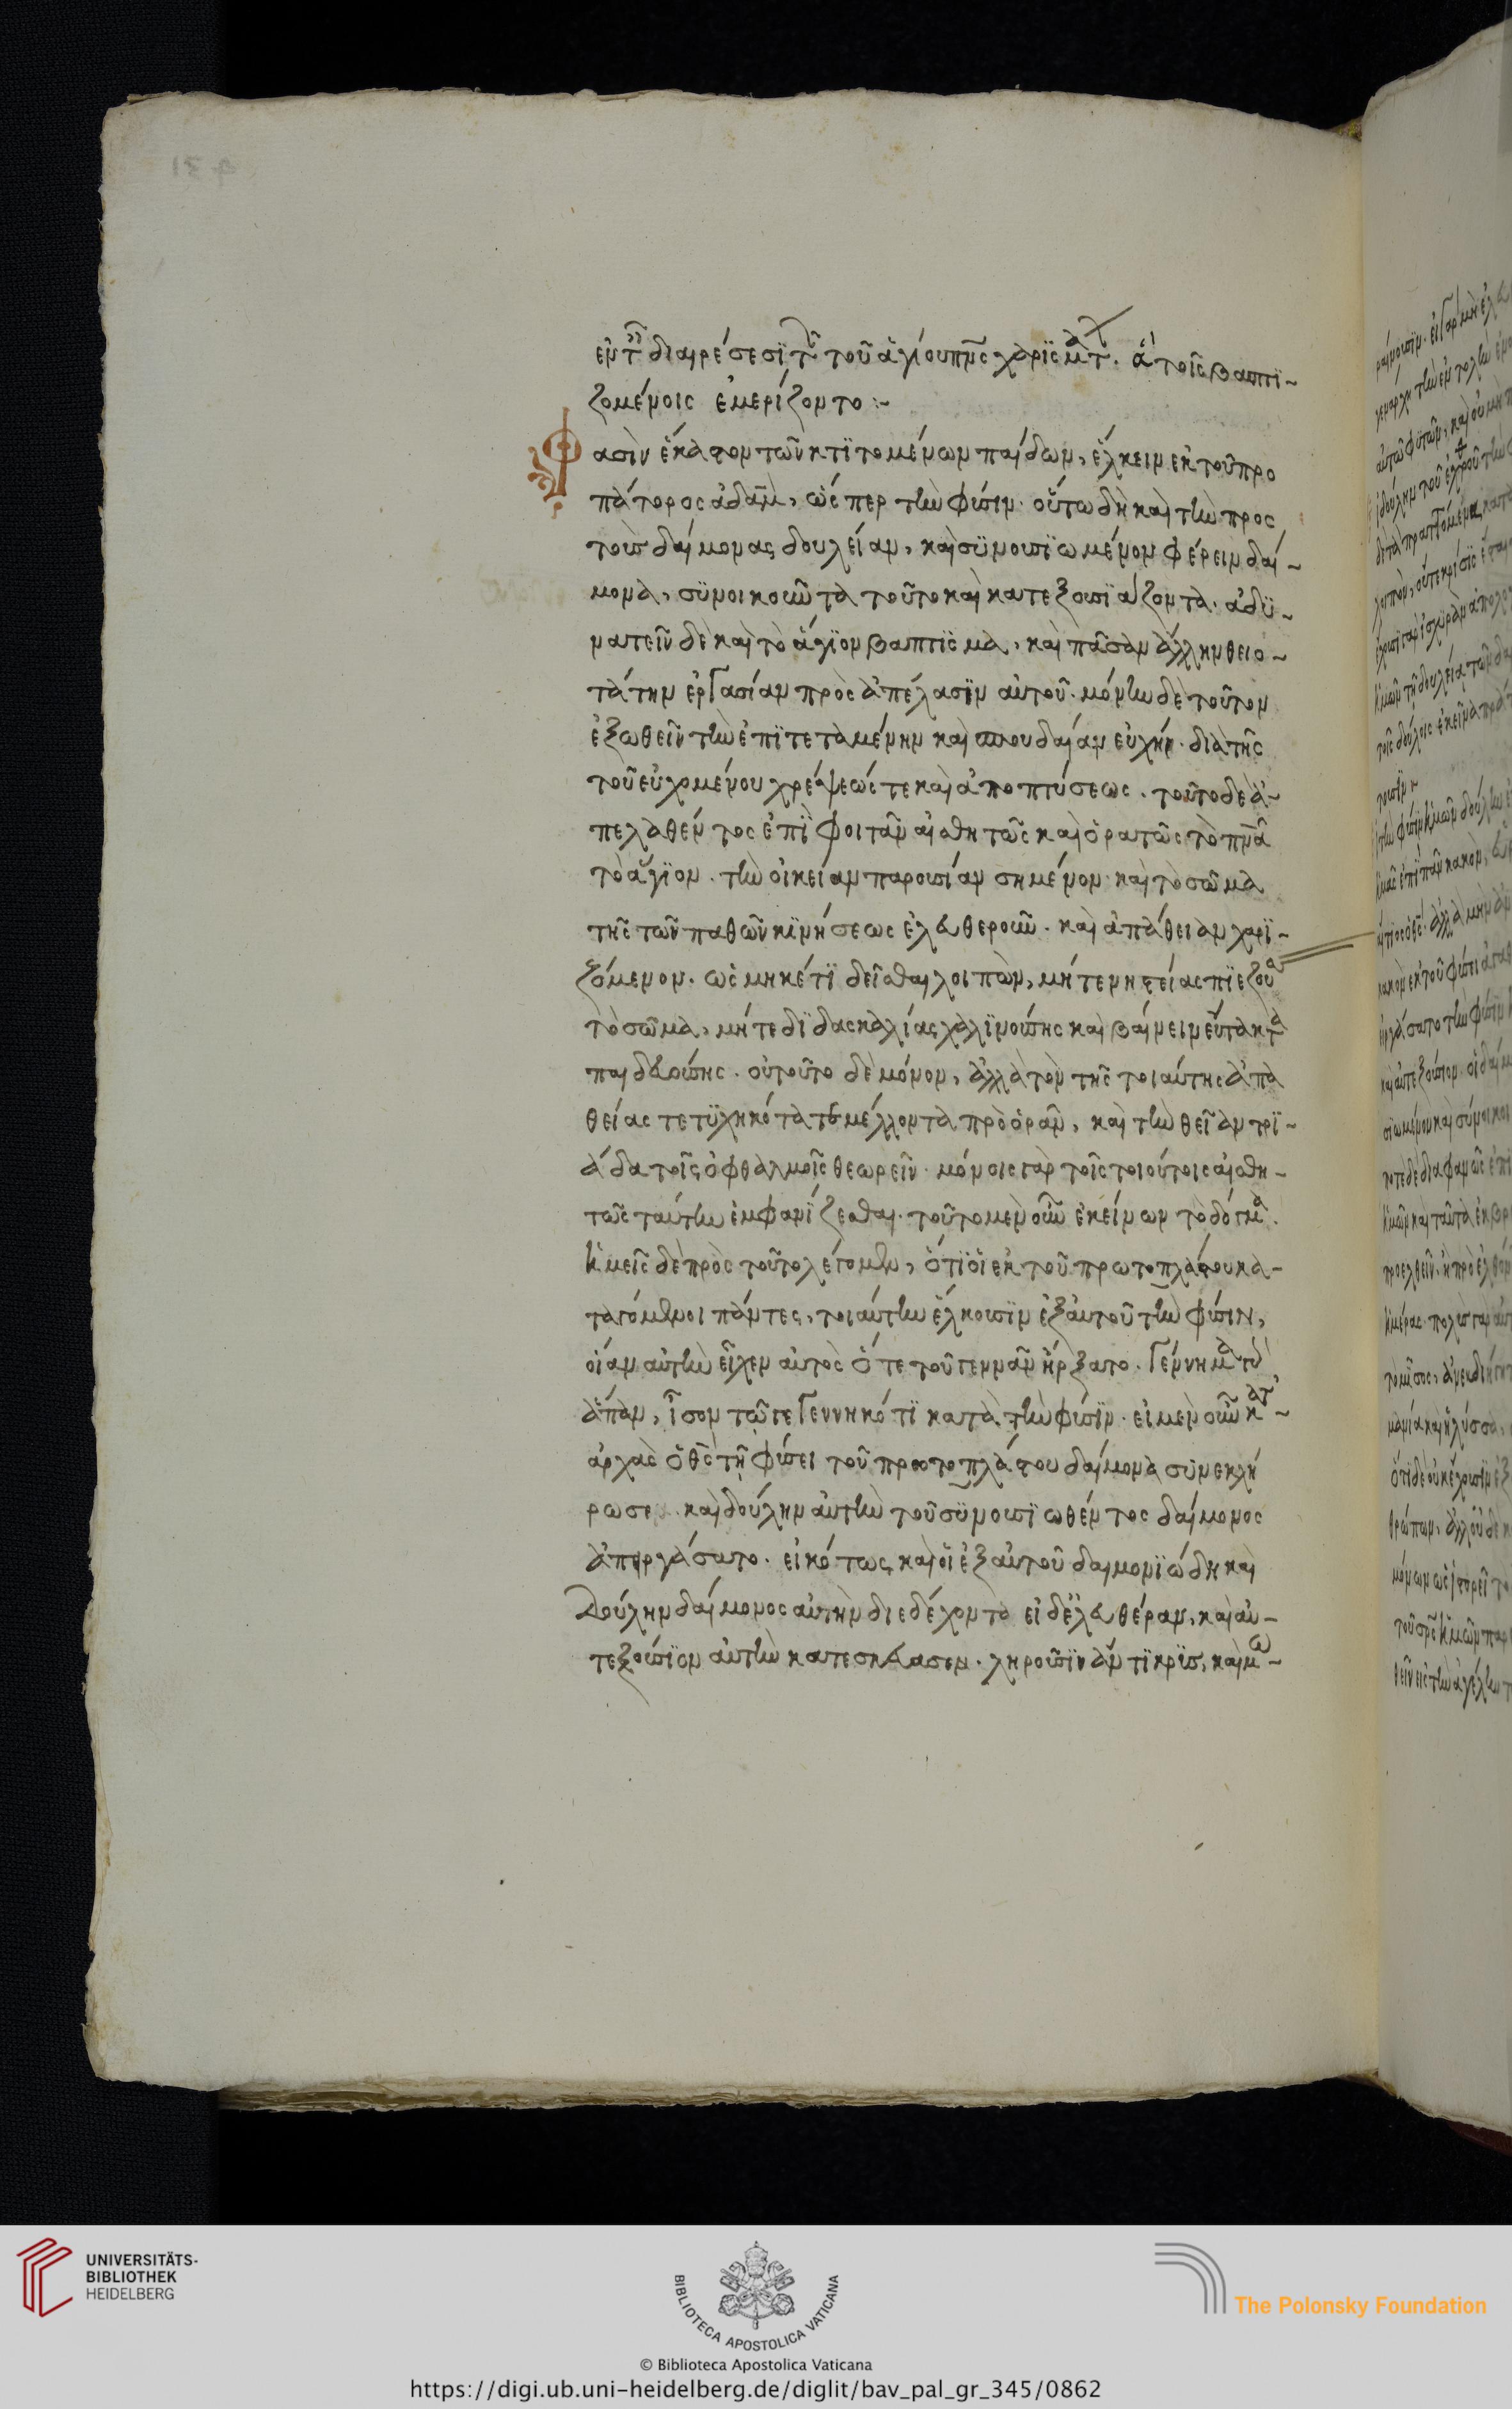 ἐν τ διαιρέσεσϊ τ τοῦ ἁγίου πνς χαρϊσμάτ. ἃ τοῖς βαπτϊ-
ζομένοις ἐμερίζοντο :-
Φασὶν ἕκαστον τῶν κτϊτομένων παίδων, ἕλκειν ἐκ τοῦ προ
πάτορος ἀδὰμ, ὥσπερ τὴν φύσιν. οὕτω δὴ καὶ τὴν πρὸς
τοὺς δαίμονας δουλείαν, καὶ σϋνουσϊωμένον φέρειν δαί-
μονα, σϋνοικοῦντα τοῦτο καὶ κατεξουσϊάζοντα. ἀδϋ-
νατεῖν δὲ καὶ τὸ ἅγϊον βαπτϊσμα, καὶ πᾶσαν ἄλλην θειο-
τάτην ἐργασίαν πρὸς ἀπέλασϊν αὐτοῦ. μόνην δὲ τοῦτον
ἐξωθεῖν τὴν ἐπϊτεταμένην καὶ σπουδαίαν εὐχήν. διὰ τῆς
τοῦ εὐχομένου χρέμψεώς τε καὶ ἀποπτύσεως. τούτο δὲ ἀ-
πελαθέντος ἐπϊφοιτᾶν αἰσθητῶς καὶ ὁρατῶς τὸ πνα
τὸ ἅγϊον. τὴν οἰκείαν παρουσίαν σημένον καὶ τὸ σῶμα
τῆς τῶν παθῶν κϊνήσεως ἐλευθεροῦν. καὶ ἀπάθειαν χαρϊ-
ζόμενον. ὡς μηκέτϊ δεῖσθαι λοιπὸν, μήτε νηστείας πϊεζού
τὸ σῶμα, μήτε δϊδασκαλίας χαλϊνούσης καὶ βαίνειν εὔτακτα
παιδευούσης. οὐ τοῦτο δὲ μόνον, ἀλλὰ τὸν τῆς τοιαύτης ἀπα
θείας τετϋχηκότα τὰ μέλλοντα προορᾶν, καὶ τὴν θεῖαν τρϊ-
άδα τοῖς ὀφθαλμοῖς θεωρεῖν. μόνοις γὰρ τοῖς τοιούτοις αἰσθη-
τῶς ταύτην ἐμφανίζεσθαι. τοῦτο μὲν οὖν ἐκείνων τὸ δόγμα.
ἡμεῖς δὲ πρὸς τοῦτο λέγομεν, ὅτϊ οἱ ἐκ τοῦ πρωτοπλάστου κα-
ταγόμενοι πάντες, τοιαύτην ἕλκουσϊν ἐξ αὐτοῦ τὴν φύσιν,
οἵαν αὐτὴν εἶχεν αὐτὸς ὅτε τοῦ γεννᾶν ἤρξατο. γέννημα γὰρ
ἅπαν, ἶσον τῶ γεγεννηκότϊ κατὰ τὴν φύσϊν. εἰ μὲν οὖν κατ-
ἀρχὰς ὁ θς τῆ φύσει τοῦ πρωτοπλάστου δαίμονα σϋνεκλή
ρωσε καὶ δούλην αὐτὴν τοῦ σϋνουσϊωθέντος δαίμονος
ἀπηργάσατο. εἰκότως καὶ οἱ ἐξ αὐτοῦ δαιμονϊώδη καὶ
δούλην δαίμονος αὐτὴν διεδέχοντο εἰ δὲ ἐλευθέραν, καὶ αὐ-
τεξούσϊον αὐτὴν κατεσκεύασεν. ληροῦσϊν ἄντϊκρϋς, καὶ μω-

UNIVERSITÄTS-
BIBLIOTHEK
HEIDELBERG
BIBLIOTECA APOSTOLICA VATICANA
The Polonsky Foundation
© Biblioteca Apostolica Vaticana
https://digi.ub.uni-heidelberg.de/diglit/bav_pal_gr_345/0862